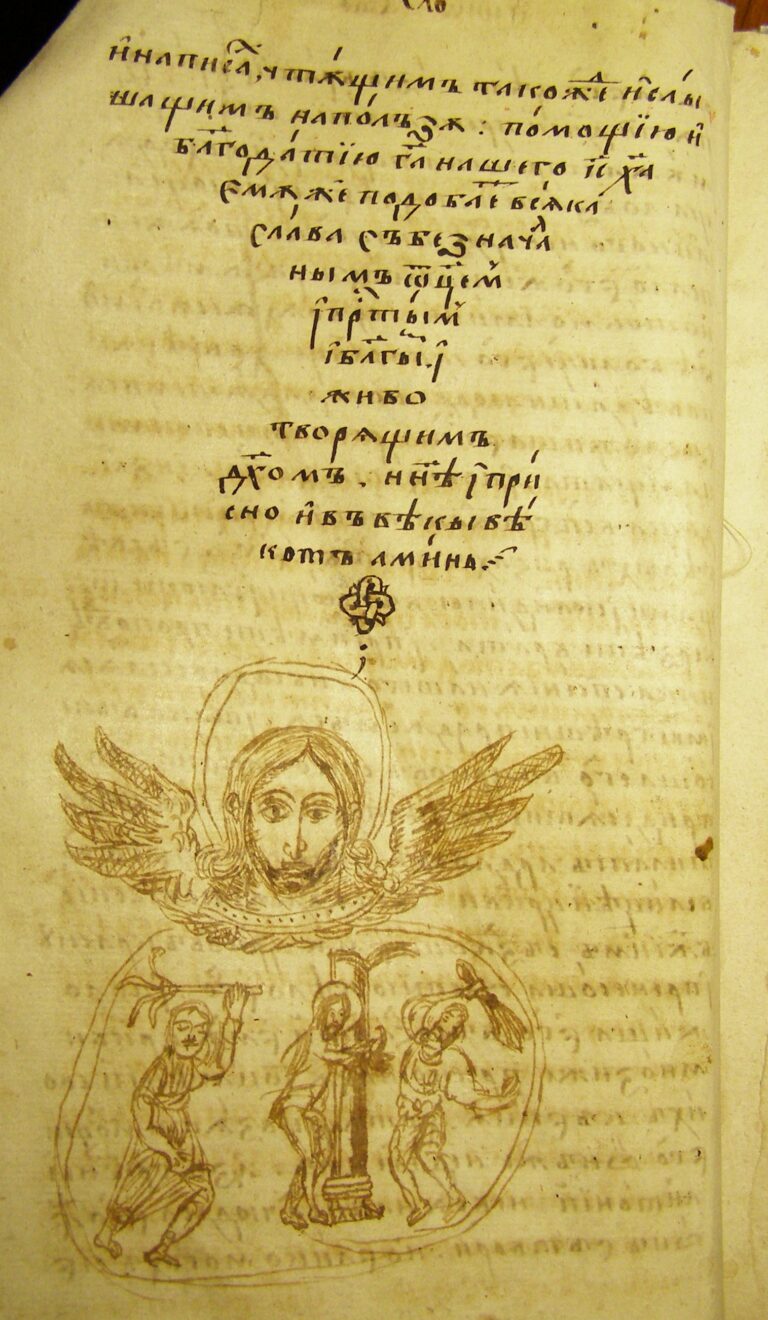 и҆написа, чтѧ́щимъ такоже и҆слы́
шащимъ напо́лъзꙋ : по́мощїю и҆
бл҃года́тїю гд҃а нашего і҃с х҃а
Ємꙋже подобае всѧ́ка
сла́ва съ безнача́л
нымъ ѿц҃емъ
і҆пр҃ты́мъ
і҆бл҃ги́. і҆
живо
творѧщимъ
дх҃омъ. нн҃ѣ і҆при́
сно и҆ въ вѣкы вѣ́
комъ ами́нь